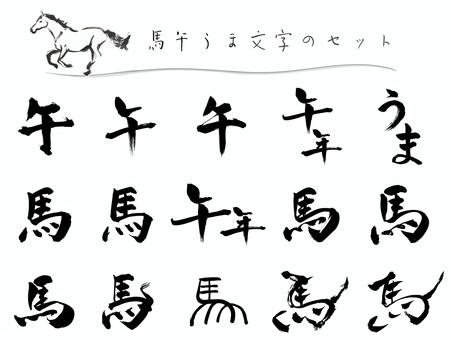 馬午うま文字のセット
午 午 午 午年 うま
馬 馬 午年 馬 馬
馬 馬 馬 馬 馬